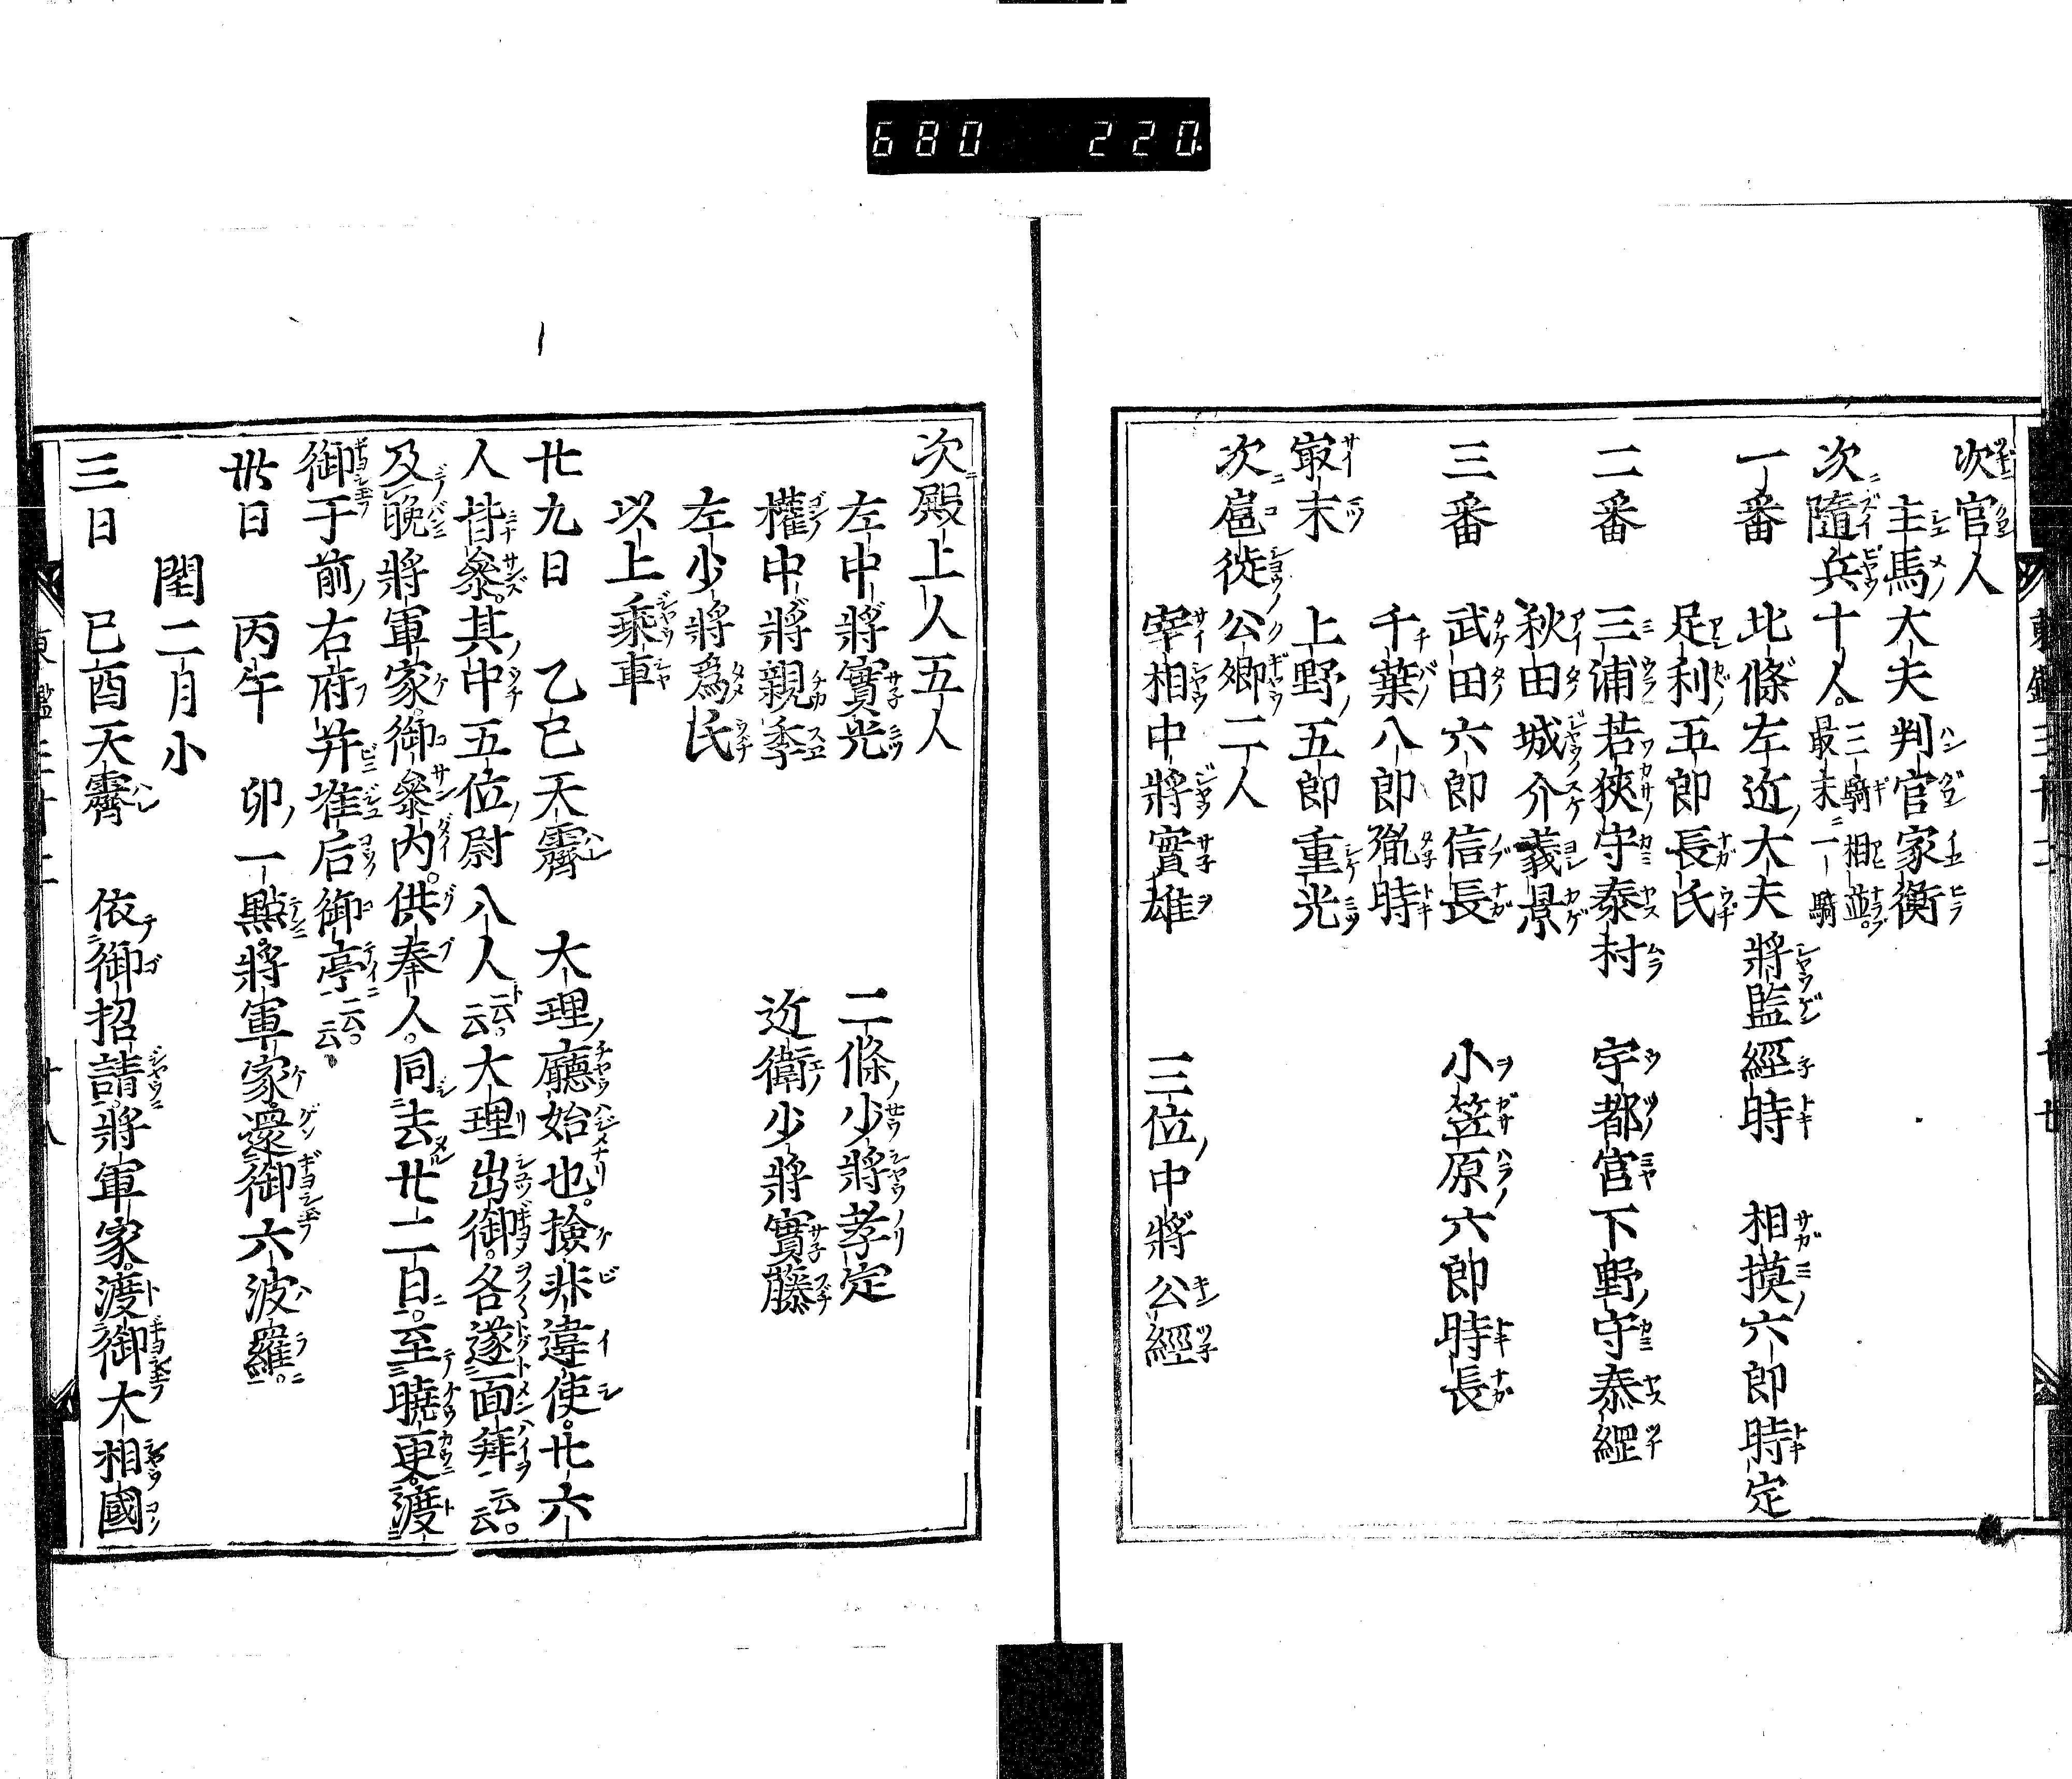 680 220
次官人
主馬大夫判官家衡
次隨兵十人。三騎相並。最末一騎
一番 北條左近大夫將監經時 相摸六郎時定
足利五郎長氏
二番 三浦若狹守泰村 宇都宮下野守泰經
秋田城介義景
三番 武田六郎信長 小笠原六郎時長
千葉八郎胤時
最末 上野五郎重光
次扈從公卿二人
宰相中將實雄 三位中將公經
次殿上人五人
左中將實光 二條少將孝定
權中將親季 近衛少將實藤
左少將爲氏
以上乘車
廿九日 乙巳天霽 大理廳始也。撿非違使。廿六
人皆參。其中五位尉八人云云。大理出御。各遂面拜云云。
及晩將軍家御參内。供奉人。同去廿二日。至曉更。渡
御于前右府并准后御亭云云。
卅日 丙午 卯一點。將軍家。還御六波羅。
閏二月小
三日 己酉天霽 依御招請。將軍家。渡御大相國